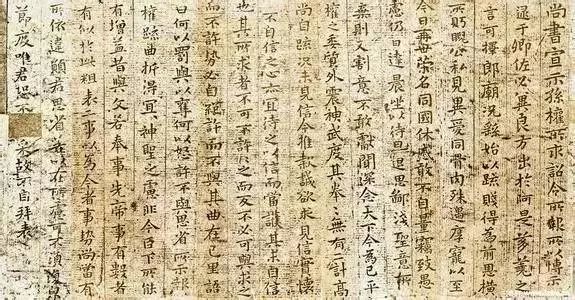 尚書宣示孫權所求詔令所報所以博示
逮于卿佐必冀良方出於阿是芻蕘之
言可擇郎廟況繇始以疏賤得為前恩橫
所眄睨公私見異愛同骨肉殊遇厚寵以至
今日再世榮名同國休慼敢不自量竊致愚
慮仍日達晨坐以待旦退思鄙淺聖意所
棄則又割意不敢獻聞深念天下今為已平
權之委質外震神武度其拳々無有二計高
尚自疏況未見信今推款誠欲求見信實懷
不自信之心亦宜待之以信而當護其未自信
也其所求者不可不許許之而反不必可與求之
而不許勢必自絕許而不與其曲在己里語
曰何以罰與以奪何以怒許不與思省所示報
權疏曲折得宜宜神聖之慮非今臣下所能
有增益昔與文若奉事先帝事有數者
有似於此粗表二事以為今者事勢尚當有
所依違願君思省若以在所慮可不須
節度唯君恐不采故不自拜表